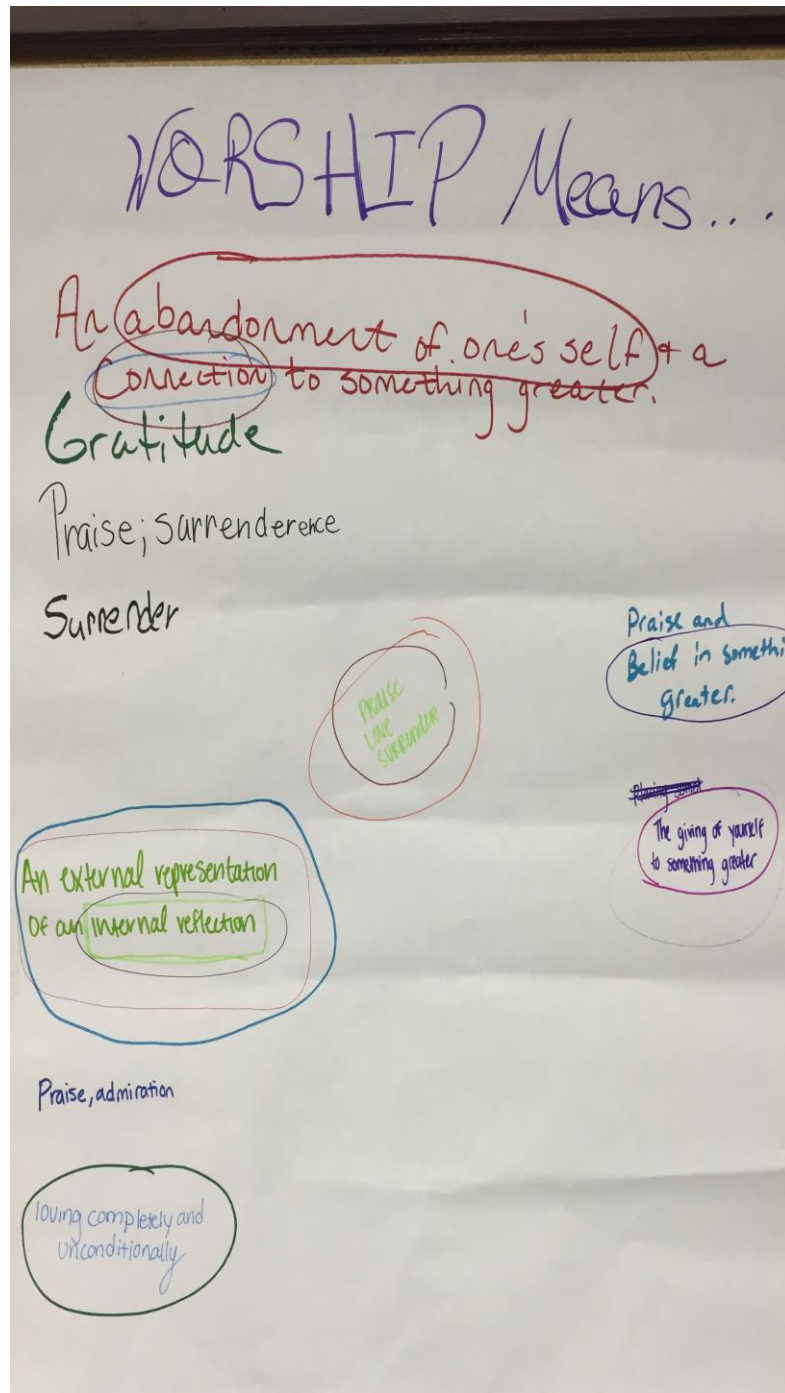 WORSHIP Means...
An abandonment of one's self + a
Connection to something greater.
Gratitude
Praise; surrenderence
Surrender
PRAISE
LOVE
SURRENDER
Praise and
Belief in somethi
greater.
The giving of yourself
to something greater
An external representation
of an internal reflection
Praise, admiration
loving completely and
unconditionally